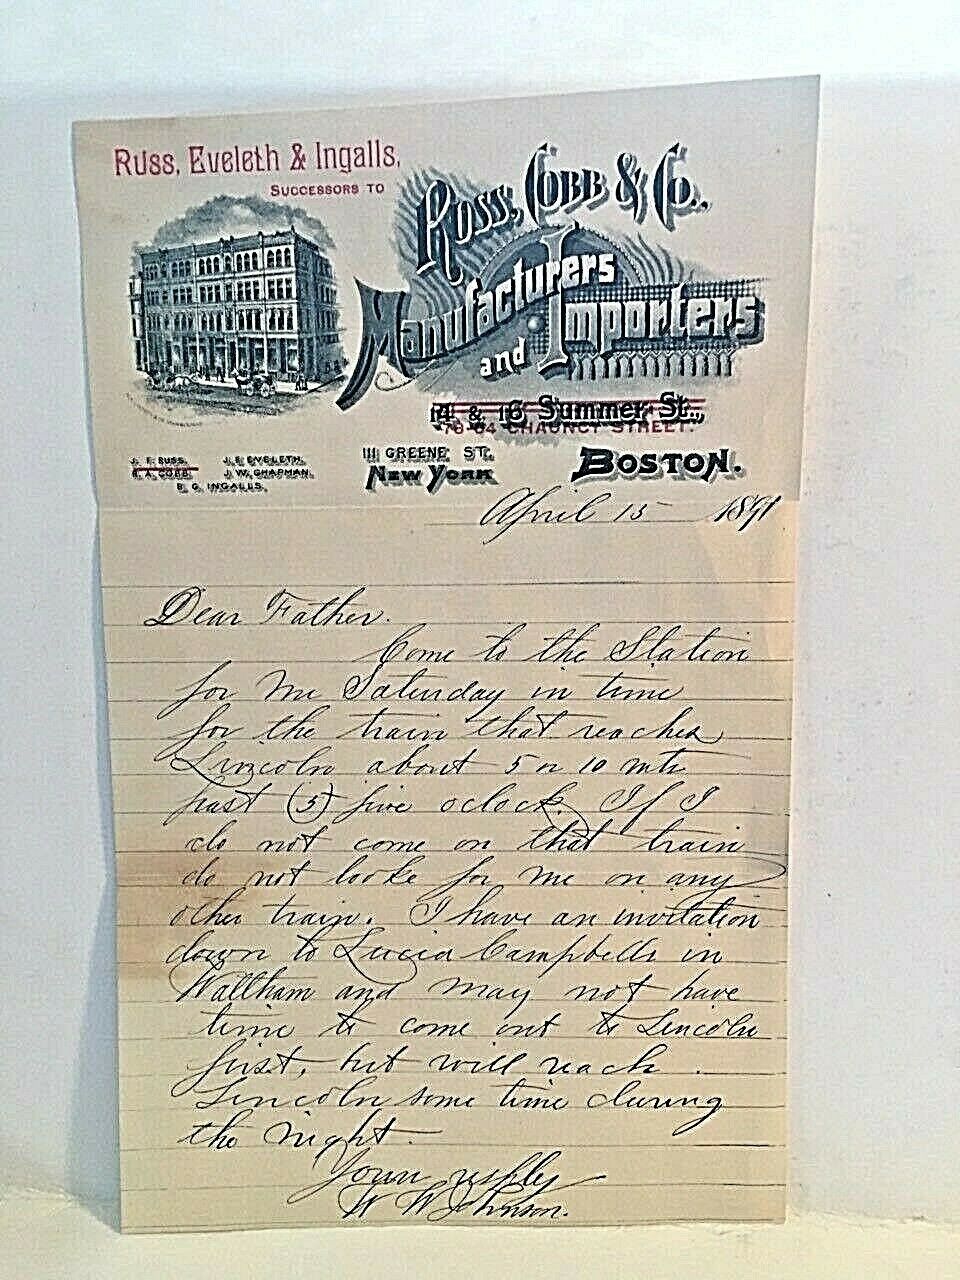 Russ, Eveleth & Ingalls,
SUCCESSORS TO
Russ, Cobb & Co.,
Manufacturers
and Importers
14 & 16 Summer St.,
79-84 CHAUNCY STREET.
J. F. RUSS. J. E. EVELETH.
E. A. COBB. J. W. CHAPMAN.
B. G. INGALLS.
111 GREENE ST.
NEW YORK
BOSTON.
April 15 1891
Dear Father.
Come to the Station
for me Saturday in time
for the train that reaches
Lincoln about 5 or 10 mts
past (5) five oclock. If I
do not come on that train
do not looke for me on any
other train. I have an invitation
down to Lucia Campbells in
Waltham and may not have
time to come out to Lincoln
first, but will reach
Lincoln some time during
the night.
Yours respfly
W W Johnson.